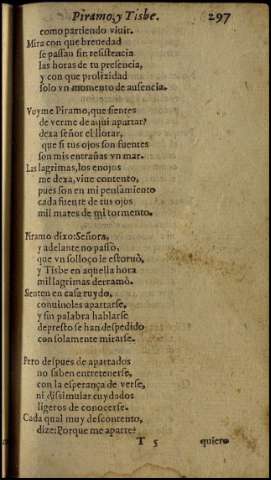 Piramo, y Tisbe. 297
como partiendo viuir.
Mira con que breuedad
se passan sin resistencia
las horas de tu presencia,
y con que prolixidad
solo vn momento de ausencia.
Voyme Piramo, que sientes
de verme de aqui apartar?
dexa señor el llorar,
que si tus ojos son fuentes
son mis entrañas vn mar.
Las lagrimas, los enojos
me dexa, viue contento,
pues son en mi pensamiento
cada fuente de tus ojos
mil mares de mi tormento.
Piramo dixo: Señora,
y adelante no passò,
que vn solloço le estoruò,
y Tisbe en aquella hora
mil lagrimas derramò.
Sienten en casa ruydo,
conuinoles apartarse,
y sin palabra hablarse
depresto se han despedido
con solamente mirarse.
Pero despues de apartados
no saben entretenerse,
con la esperança de verse,
ni dissimular cuydados
ligeros de conocerse.
Cada qual muy descontento,
dize: Porque me aparte?
T 5 quiero